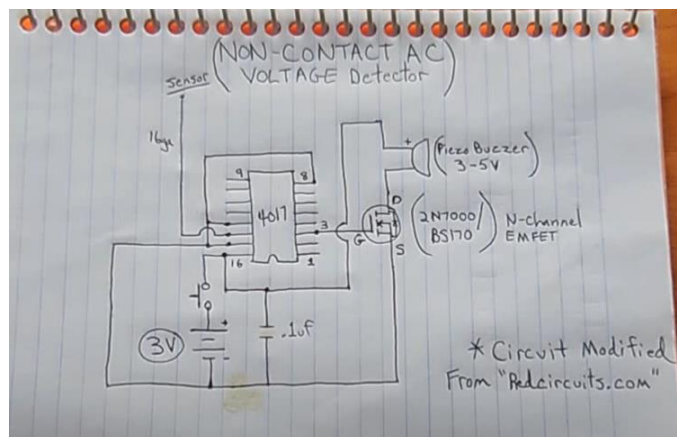 (NON-CONTACT AC
VOLTAGE Detector)
Sensor
16ga
9
8
4017
3
16
1
+
(Piezo Buzzer
3-5V)
D
G
S
(2N7000/
BS170)
N-Channel
EMFET
+
3V
-
.1uf
* Circuit Modified
From "Redcircuits.com"